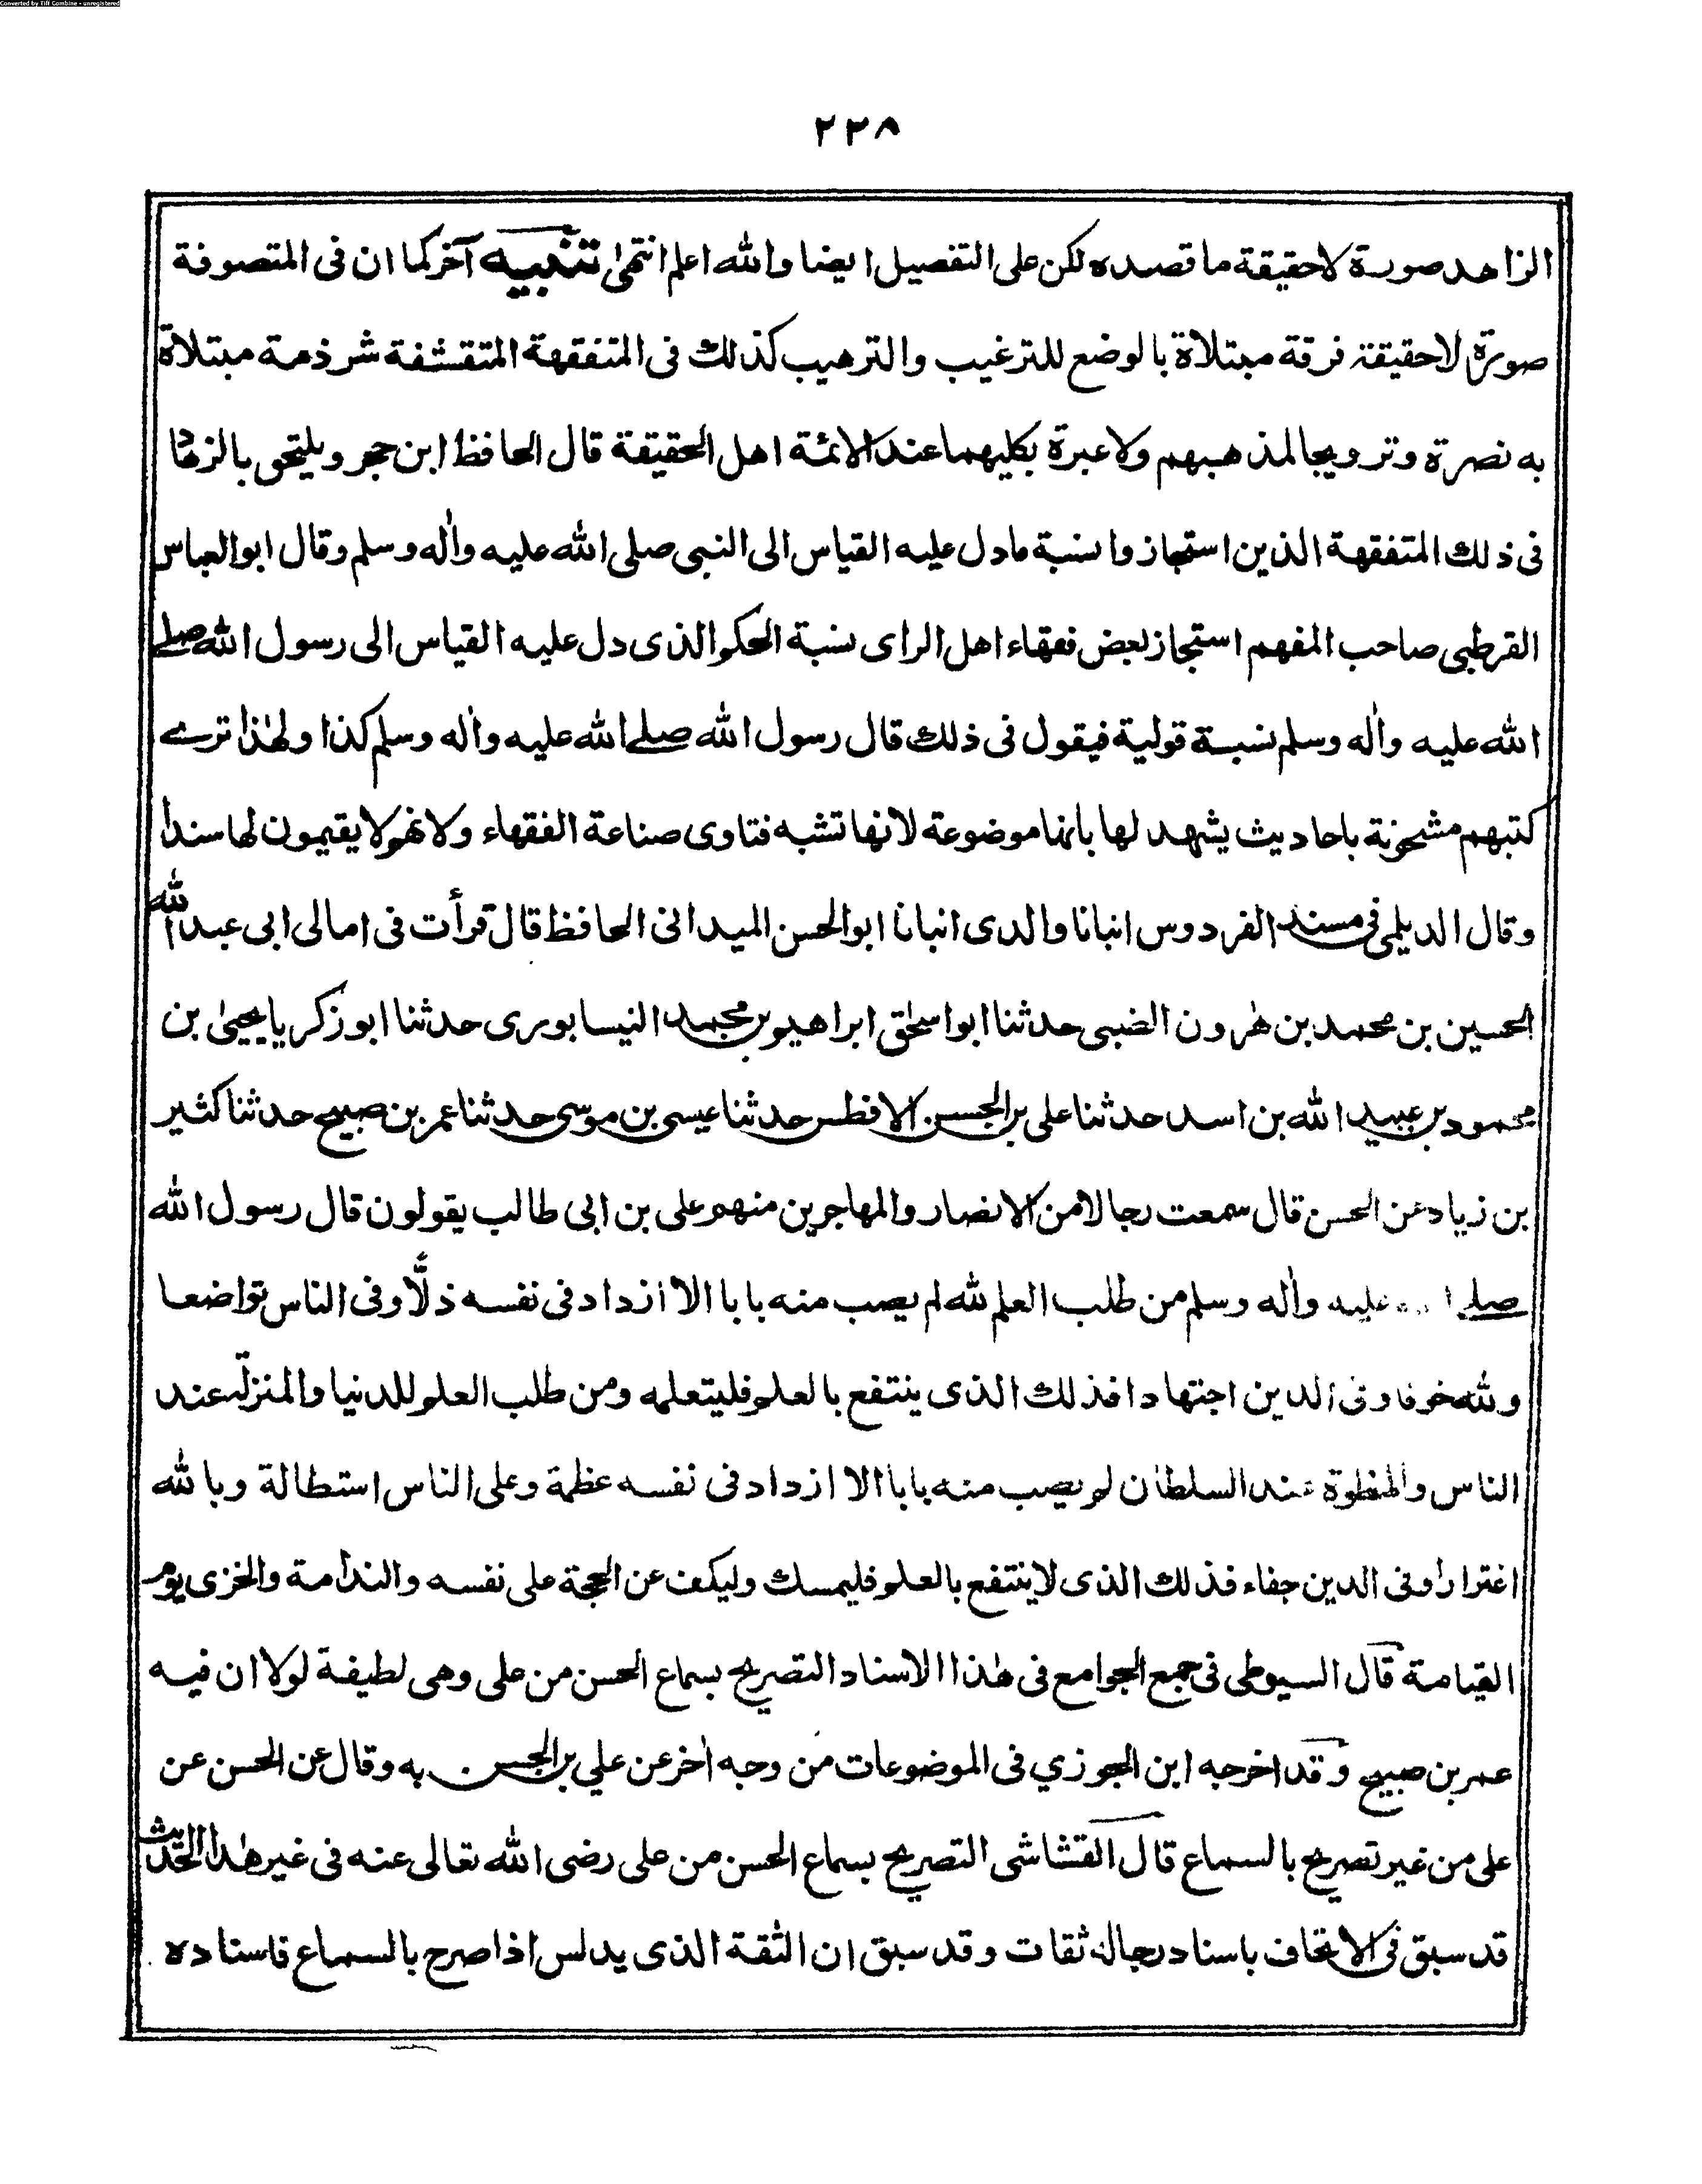 Converted by Tiff Combine - unregistered
٢٣٨
الزاهد صورة لاحقيقة ما قصده لكن على التفصيل ايضا والله اعلم انتهى تنبيه آخر كما ان فى المتصوفة
صورة لاحقيقة فرقة مبتلاة بالوضع للترغيب والترهيب كذلك فى المتفقهة المتقشفة شرذمة مبتلاة
به نصرة وترويجا لمذهبهم ولا عبرة بكليهما عند الائمة اهل الحقيقة قال الحافظ ابن حجر ويلتحق بالزهاد
فى ذلك المتفقهة الذين استجازوا نسبة ما دل عليه القياس الى النبى صلى الله عليه واٰله وسلم وقال ابو العباس
القرطبى صاحب المفهم استجاز بعض فقهاء اهل الراى نسبة الحكم الذى دل عليه القياس الى رسول الله صلے
الله عليه واٰله وسلم نسبة قولية فيقول فى ذلك قال رسول الله صلے الله عليه واٰله وسلم كذا ولهٰذا ترے
كتبهم مشحونة باحاديث يشهد لها بانها موضوعة لانها تشبه فتاوى صناعة الفقهاء ولانهم لا يقيمون لها سندا
وقال الديلمى فى مسند الفردوس انبانا والدى انبانا ابو الحسن الميدانى الحافظ قال قرأت فى امالى ابى عبد الله
الحسين بن محمد بن هٰرون الضبى حدثنا ابو اسحٰق ابراهيم بن محمد النيسابورى حدثنا ابو زكريا يحيىٰ بن
محمود بن عبيد الله بن اسد حدثنا على بن الحسن الافطس حدثنا عيسى بن موسى حدثنا عمر بن صبيح حدثنا كثير
بن زياد عن الحسن قال سمعت رجالا من الانصار والمهاجرين منهم على بن ابى طالب يقولون قال رسول الله
صلے عليه واٰله وسلم من طلب العلم لله لم يصب منه بابا الا ازداد فى نفسه ذلّا وفى الناس تواضعا
ولله خوفا وفى الدين اجتهادا فذلك الذى ينتفع بالعلم فليتعلمه ومن طلب العلم للدنيا والمنزلة عند
الناس والحظوة عند السلطان لم يصب منه بابا الا ازداد فى نفسه عظمة وعلى الناس استطالة وبالله
اغترارا وفى الدين جفاء فذلك الذى لا ينتفع بالعلم فليمسك وليكف عن الحجة على نفسه والندامة والخزى يوم
القيامة قال السيوطى فى جمع الجوامع فى هٰذا الاسناد التصريح بسماع الحسن من على وهى لطيفة لولا ان فيه
عمر بن صبيح وقد اخرجه ابن الجوزي فى الموضوعات من وجه اٰخر عن علي بن الحسن به وقال عن الحسن عن
على من غير تصريح بالسماع قال القشاشى التصريح بسماع الحسن من على رضى الله تعالى عنه فى غير هٰذا الحديث
قد سبق فى الاتحاف باسناد رجاله ثقات وقد سبق ان الثقة الذى يدلس اذا صرح بالسماع فاسناده